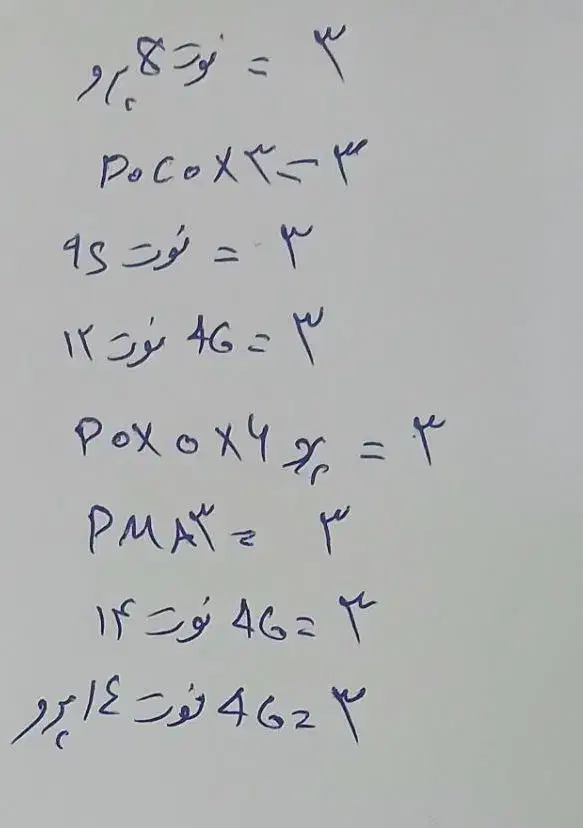 نوت 8 پرو = ۳
PocoX۳ = ۳
نوت 9S = ۳
نوت ۱۲ 4G = ۳
PoXoX۶ پرو = ۳
PMA۳ = ۳
نوت ۱۴ 4G = ۳
نوت ۱٤ پرو 4G = ۳